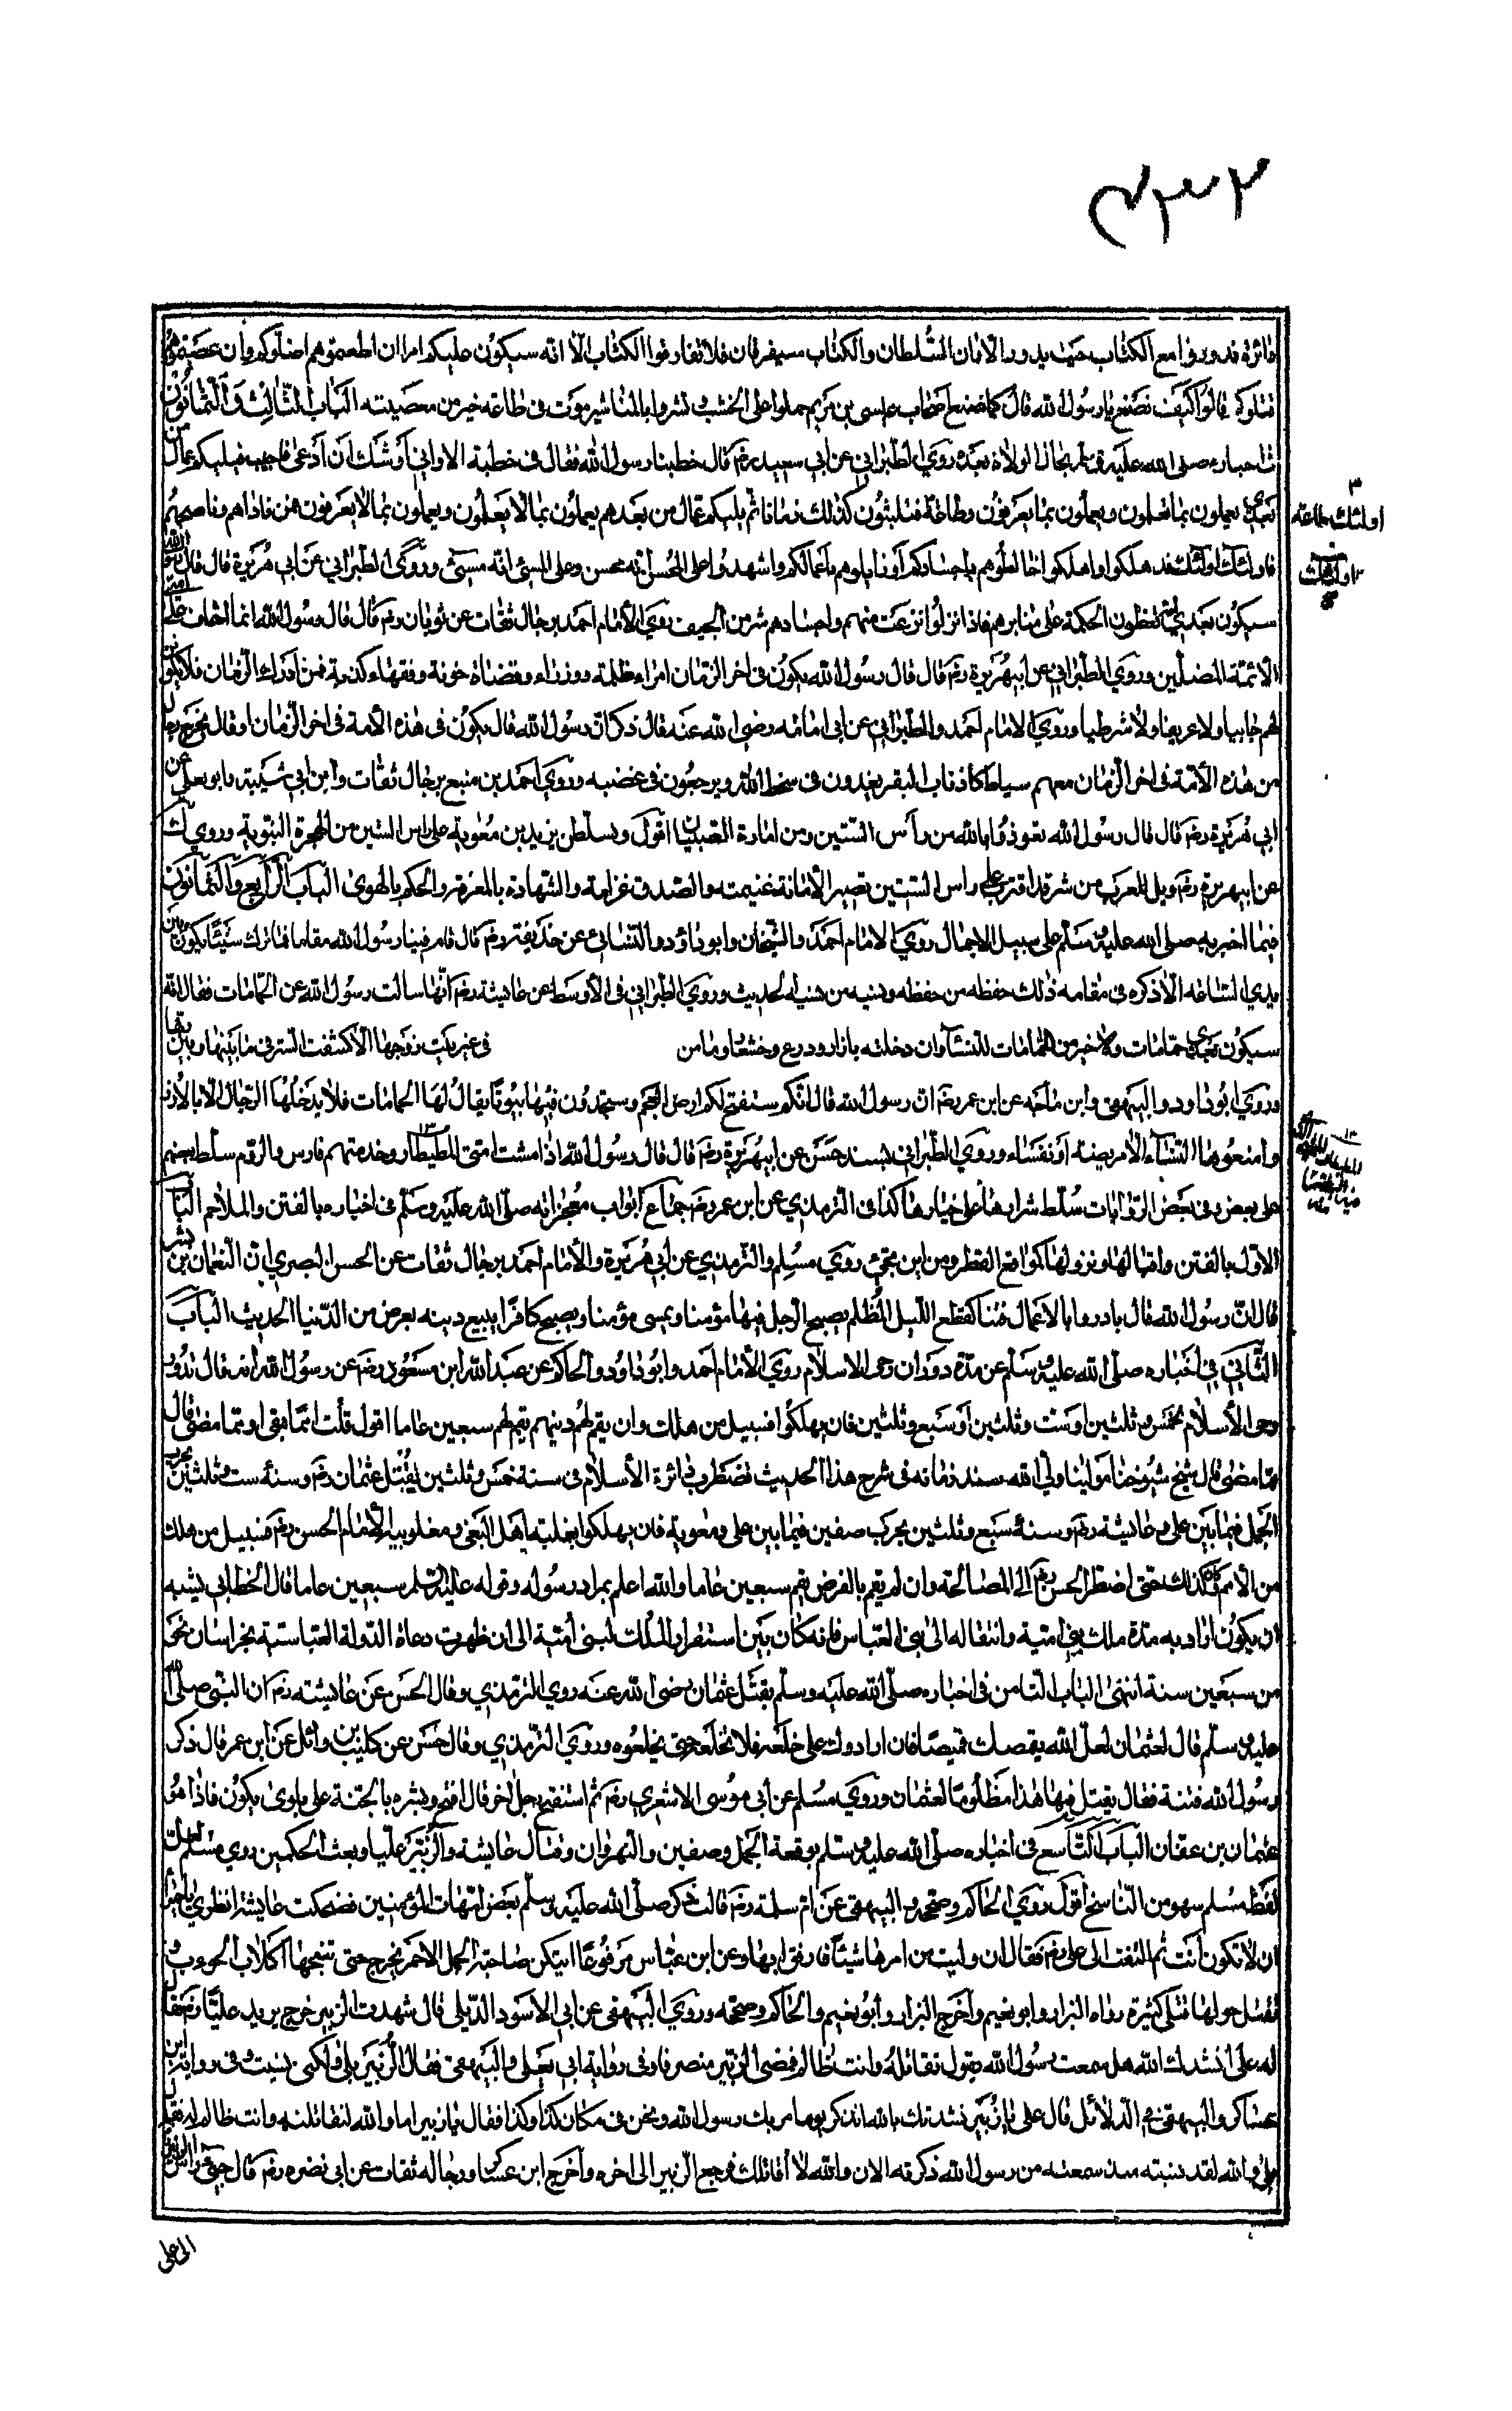 ٤٣٣
دائرة فدوروا مع الكتاب حيث يدور الا ان السلطان والكتاب سيفرقان فلا تفارقوا الكتاب الا انه سيكون عليكم امرا ان اطعمتوهم اضلوكم وان عصيتموهم
قتلوكم قالوا كيف نصنع يا رسول الله قال كما صنع اصحاب عيسى بن مريم حملوا على الخشب ونشروا بالمناشير موت فى طاعة خير من معصيته الباب الثالث والثمانون
اخباره صلى الله عليه وسلم بحال الولاة بعده روى الطبراني عن ابي سعيد رضـ قال خطبنا رسول الله فقال فى خطبة الا واني اوشك ان ادعى فاجيب فيليكم عمال من
بعدي يعملون بما تعلمون ويعملون بما يعرفون وطاعة فتلبثون كذلك زمانا ثم يليكم عمال من بعدهم يعملون بما لا يعلمون ويعملون بما لا يعرفون فمن قادهم وناصحهم
فاولئك اولئك قد هلكوا واهلكوا خالطوهم باجسادكم وزايلوهم باعمالكم واشهدوا على المحسن انه محسن وعلى المسئ انه مسئ وروى الطبراني عن ابي هريرة قال قال رسول الله
سيكون بعدي يعظون الحكمة على منابرهم فاذا نزلوا نزعت منهم واجسادهم شر من الجيف روى الامام احمد برجال ثقات عن ثوبان رضـ قال قال رسول الله انما اخاف على امتي
الائمة المضلين وروى الطبراني عن ابيهريرة رضـ قال قال رسول الله يكون فى اخر الزمان امراء ظلمة ووزراء وقضاة خونة وفقهاء كذبة فمن ادرك الزمان فلا يكون
لهم جابيا ولا عريفا ولا شرطيا وروى الامام احمد والطبراني عن ابى امامة رضى الله عنه قال ذكر ان رسول الله قال يكون فى هذه الامة فى اخر الزمان او قال يخرج رجال
من هذه الامة فى اخر الزمان معهم سياط كأذناب البقر يغدون فى سخط الله ويرجعون فى غضبه وروى احمد بن منيع برجال ثقات وابن ابي شيبة وابو يعلى عن
ابي هريرة رضـ قال قال رسول الله تعوذوا بالله من رأس الستين ومن امارة الصبيان اقول وتسلطن يزيد بن معوية على راس الستين من الهجرة النبوية وروى
عن ابيهريرة رضـ ويل للعرب من شر قد اقترب على راس الستين تصير الامانة غنيمة والصدقة غرامة والشهادة بالمعرفة والحكم بالهوى الباب الرابع والثمانون
فيما اخبر به صلى الله عليه وسلم على سبيل الاجمال روى الامام احمد والشيخان وابو داؤد والنسائى عن حذيفة رضـ قال قام فينا رسول الله مقاما فما ترك شيئا يكون من بين
يدي الساعة الا ذكره فى مقامه ذلك حفظه من حفظه ونسيه من نسيه الحديث وروى الطبراني فى الاوسط عن عايشة رضـ انها سالت رسول الله عن الحمامات فقال انه
سيكون بعدي حمامات ولا خير من الحمامات للنساء وان دخلته بازار ودرع وخمار وما من فى غير بيت زوجها الا كشفت الستر فى ما بينها وبين ربها
وروى ابو داود والبيهقى وابن ماجه عن ابن عمر رضـ ان رسول الله قال انكم ستفتح لكم ارض العجم وستجدون فيها بيوتا يقال لها الحمامات فلا يدخلها الرجال الا بالازر
وامنعوها النساء الا مريضة او نفساء وروى الطبراني بسند حسن عن ابيهريرة رضـ قال قال رسول الله اذا مشت امتى المطيطاء وخدمتهم فارس والروم سلط بعضهم
على بعض وفى بعض الروايات سلط شرارها على خيارها كذا فى الترمذي عن ابن عمر رضـ جماع ابواب معجزاته صلى الله عليه وسلم فى اخباره بالفتن والملاحم الباب
الاول بالفتن واقبالها ونزولها كمواقع القطر ومن ابن تجئ روى مسلم والترمذي عن ابي هريرة والامام احمد برجال ثقات عن الحسن البصري ان النعمان بن بشير
قال ان رسول الله قال بادروا بالاعمال فتنا كقطع الليل المظلم يصبح الرجل فيها مؤمنا ويمسى مؤمنا ويصبح كافرا يبيع دينه بعرض من الدنيا الحديث الباب
الثاني فى اخباره صلى الله عليه وسلم عن مدة دوران رحى الاسلام روى الامام احمد وابو داود والحاكم عن عبد الله ابن مسعود رضـ عن رسول الله انه قال تدور
رحى الاسلام بخمس وثلثين او ست وثلثين او سبع وثلثين فان يهلكوا فسبيل من هلك وان يقم لهم دينهم يقم لهم سبعين عاما اقول قلت امما بقى او مما مضى قال
مما مضى قال شيخ شيوخنا مولينا ولي الله سند زمانه فى شرح هذا الحديث تضطرب دائرة الاسلام فى سنة خمس وثلثين بقتل عثمان رضـ وسنة ست وثلثين بحرب
الجمل فيما بين على وعايشة رضـ وسنة سبع وثلثين بحرب صفين فيما بين على ومعوية فان يهلكوا بغلبة اهل البغى ومغلوبية الامام الحسن رضـ فسبيل من هلك
من الامم وكان كذلك حتى اضطر الحسن رضـ الى المصالحة وان لم يقم بالفرض يقم سبعين عاما والله اعلم بمراد رسوله وقوله عليه وسلم سبعين عاما قال الخطابى يشبه
ان يكون اراد به مدة ملك بني امية وانتقاله الى بني العباس فانه كان بين استقرار الملك لبنى امية الى ان ظهرت دعاة الدولة العباسية بخراسان نحو
من سبعين سنة انتهى الباب الثامن فى اخباره صلى الله عليه وسلم بقتل عثمان رضى الله عنه روى الترمذي وقال الحسن عن عايشة رضـ ان النبى صلى الله
عليه وسلم قال لعثمان لعل الله يقمصك قميصا فان ارادوك على خلعه فلا تخلعه حتى يخلعوه وروى الترمذي وقال حسن عن كليب بن وائل عن ابن عمر قال ذكر
رسول الله فتنة فقال يقتل فيها هذا مظلوما لعثمان وروى مسلم عن ابى موسى الاشعري رضـ ثم استفتح رجل اخر قال افتح وبشره بالجنة على بلوى يكون فاذا هو
عثمان بن عفان الباب التاسع فى اخباره صلى الله عليه وسلم بوقعة الجمل وصفين والنهروان وقتال عايشة والزبير عليا وبعث الحكمين روى مسلم لعل
لفظ مسلم سهو من الناسخ اقول روى الحاكم وصححه والبيهقى عن ام سلمة رضـ قالت ذكر صلى الله عليه وسلم بعض امهات المؤمنين فضحكت عايشة انظري يا حميرا
ان لا تكون انت ثم التفت الى على رضـ فقال ان وليت من امرها شيئا فارفق بها وعن ابن عباس مرفوعا ايتكن صاحبة الجمل الاحمر تخرج حتى تنبحها كلاب الحوءب
تقتل حولها قتلى كثيرة رواه البزار وابو نعيم واخرج البزار وابو نعيم والحاكم وصححه وروى البيهقى عن ابي الاسود الديلى قال شهدت الزبير خرج يريد عليا رضـ فقال
له على انشدك الله هل سمعت رسول الله يقول تقاتله وانت ظالم فمضى الزبير منصرفا وفى رواية ابي يعلى والبيهقى فقال الزبير بلى ولكن نسيت وفى رواية ابن
عساكر والبيهقى فى الدلائل قال على يا زبير نشدتك بالله اتذكر يوما مر بك رسول الله ونحن فى مكان كذا وكذا فقال يا زبير اما والله لتقاتلنه وانت ظالم له فقال
بلى والله لقد نسيته منذ سمعته من رسول الله ذكرته الان والله لا اقاتلك فرجع الزبير الى اخره واخرج ابن عساكر ورجاله ثقات عن ابى نضرة رضـ قال
الى على
اولئك طاعة